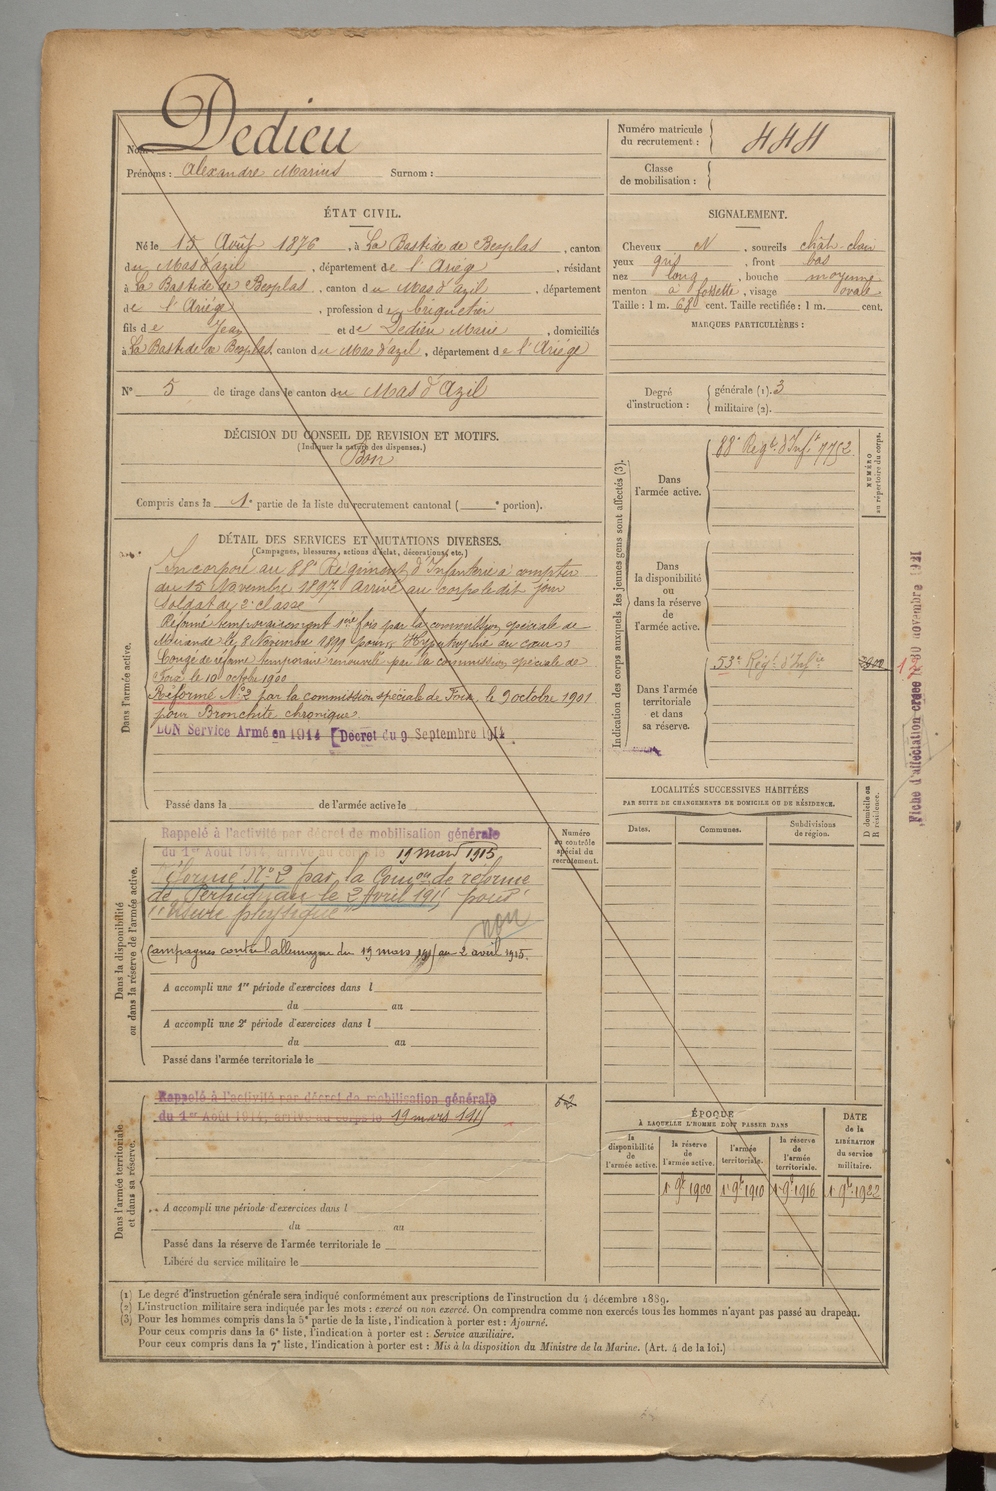 Nom : Dedieu
Prénoms : Alexandre Marius Surnom :
Numéro matricule du recrutement : 444
Classe de mobilisation :
ÉTAT CIVIL.
Né le 15 Août 1876, à La Bastide de Besplas, canton
du Mas d'azil, département de l'Ariége, résidant
à La Bastide de Besplas, canton du Mas d'azil, département
de l'Ariége, profession de briquetier
fils de Jean et de Dedieu Marie, domiciliés
à La Bastide de Besplas, canton du Mas d'azil, département de l'Ariége
N° 5 de tirage dans le canton du Mas d'Azil
SIGNALEMENT.
Cheveux N, sourcils chât-clair
yeux gris, front bas
nez long, bouche moyenne
menton à fossette, visage ovale
Taille : 1 m. 680 cent. Taille rectifiée : 1 m. cent.
MARQUES PARTICULIÈRES :
Degré d'instruction : générale (1). 3
militaire (2).
DÉCISION DU CONSEIL DE REVISION ET MOTIFS.
(Indiquer la nature des dispenses.)
Bon
Compris dans la 1e partie de la liste du recrutement cantonal ( e portion).
DÉTAIL DES SERVICES ET MUTATIONS DIVERSES.
(Campagnes, blessures, actions d'éclat, décorations, etc.)
Dans l'armée active.
Incorporé au 88e Régiment d'Infanterie à compter
du 15 Novembre 1897. Arrivé au corps le dit jour
Soldat de 2e classe
Réformé temporairement 1ère fois par la commission spéciale de
Mirande le 8 Novembre 1899 pour Hypertrophie du cœur
Congé de réforme temporaire renouvelé par la commission spéciale de
Foix le 10 octobre 1900
Réformé N°2 par la commission spéciale de Foix, le 9 octobre 1901
pour Bronchite chronique.
BON Service Armé en 1914 [Décret du 9 Septembre 1914
Passé dans la de l'armée active le
Indication des corps auxquels les jeunes gens sont affectés (3).
Dans l'armée active.
88e Régt d'Infie 7752
NUMÉRO au répertoire du corps.
Dans la disponibilité ou dans la réserve de l'armée active.
Dans l'armée territoriale et dans sa réserve.
53e Régt d'Infie
Fiche d'affectation créée le 30 novembre 1921
LOCALITÉS SUCCESSIVES HABITÉES
PAR SUITE DE CHANGEMENTS DE DOMICILE OU DE RÉSIDENCE.
Dates. Communes. Subdivisions de région. D domicile ou R résidence.
Dans la disponibilité ou dans la réserve de l'armée active.
Numéro au contrôle spécial du recrutement.
Rappelé à l'activité par décret de mobilisation générale
du 1er Août 1914, arrivé au corps le 19 mars 1915
Réformé N°2 par la Comon de réforme
de Perpignan le 2 Avril 1915 pour
"Usure physique"
non
Campagnes contre l'allemagne du 19 mars 1915 au 2 avril 1915.
A accompli une 1re période d'exercices dans l
du au
A accompli une 2e période d'exercices dans l
du au
Passé dans l'armée territoriale le
Dans l'armée territoriale et dans sa réserve.
Rappelé à l'activité par décret de mobilisation générale
du 1er Août 1914, arrivé au corps le 19 mars 1915
A accompli une période d'exercices dans l
du au
Passé dans la réserve de l'armée territoriale le
Libéré du service militaire le
ÉPOQUE
À LAQUELLE L'HOMME DOIT PASSER DANS
la disponibilité de l'armée active. la réserve de l'armée active. l'armée territoriale. la réserve de l'armée territoriale.
DATE de la LIBÉRATION du service militaire.
1 9bre 1900 1 9bre 1910 1 9bre 1916 1 9bre 1922
(1) Le degré d'instruction générale sera indiqué conformément aux prescriptions de l'instruction du 4 décembre 1889.
(2) L'instruction militaire sera indiquée par les mots : exercé ou non exercé. On comprendra comme non exercés tous les hommes n'ayant pas passé au drapeau.
(3) Pour les hommes compris dans la 5e partie de la liste, l'indication à porter est : Ajourné.
Pour ceux compris dans la 6e liste, l'indication à porter est : Service auxiliaire.
Pour ceux compris dans la 7e liste, l'indication à porter est : Mis à la disposition du Ministre de la Marine. (Art. 4 de la loi.)